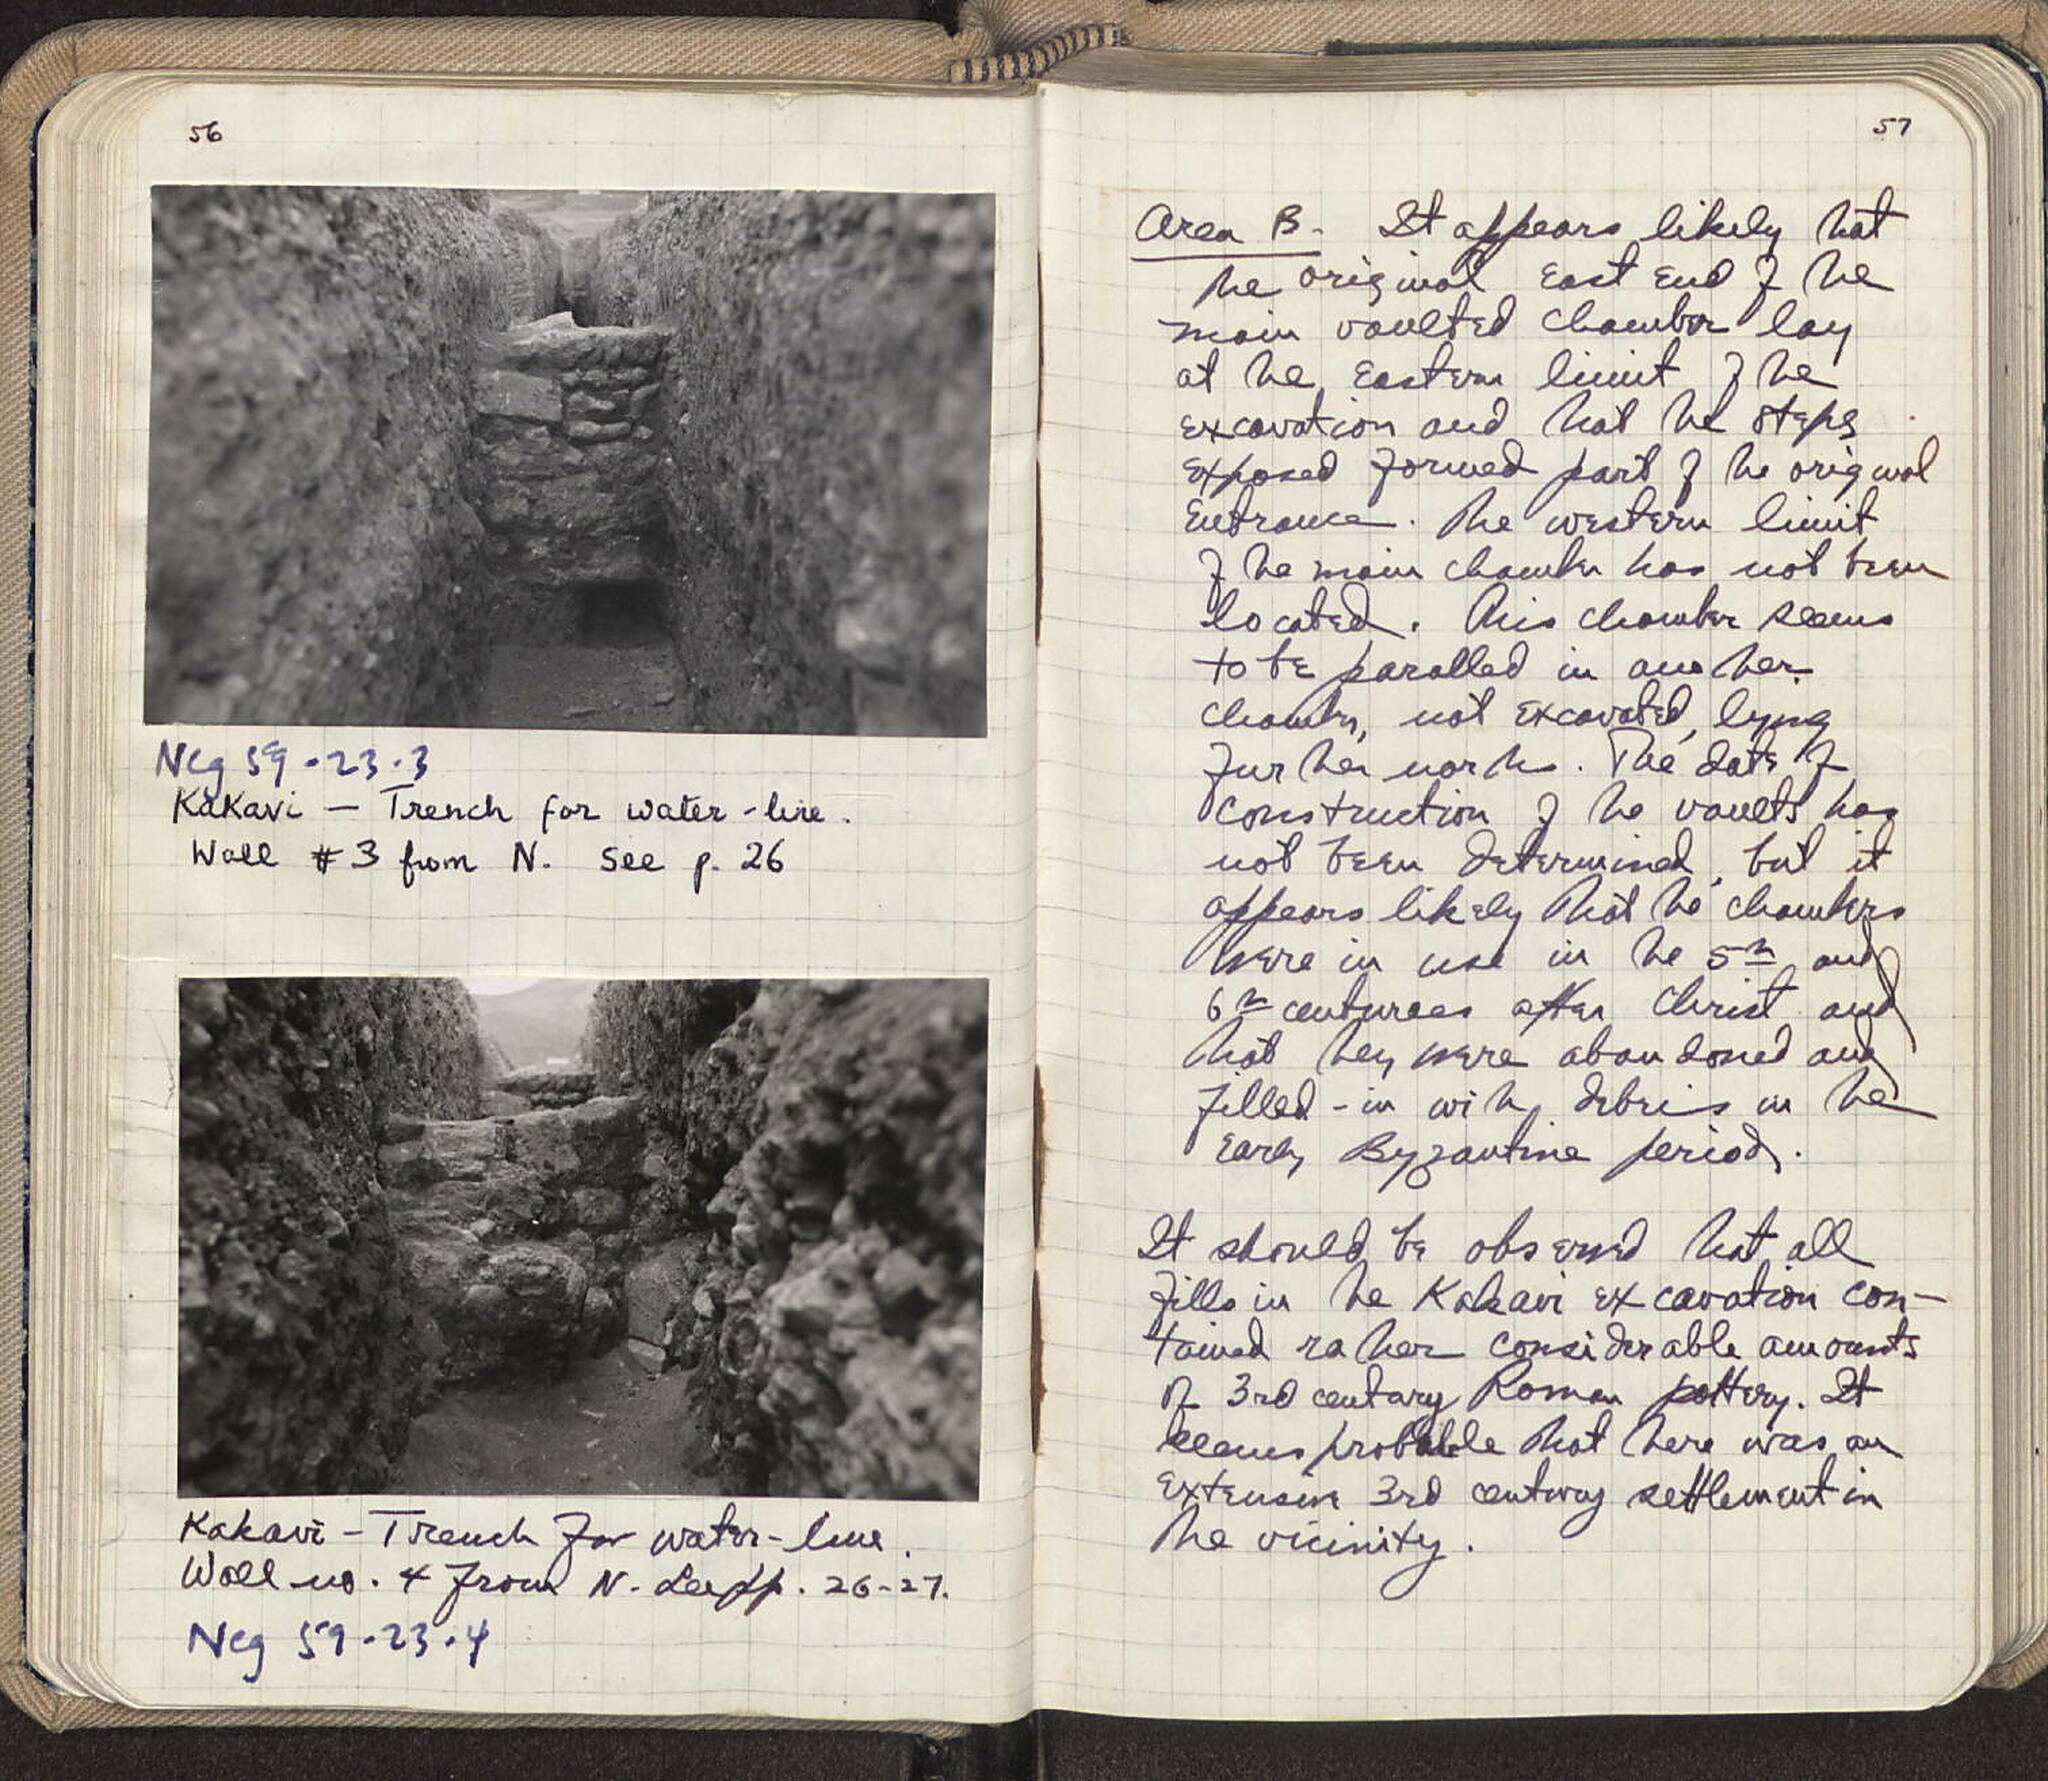 56
Neg 59-23-3
Kakavi — Trench for water-line.
Wall #3 from N. See p. 26
Kakavi — Trench for water-line.
Wall no. 4 from N. See pp. 26-27.
Neg 59-23-4
57
Area B. It appears likely that
the original east end of the
main vaulted chamber lay
at the Eastern limit of the
excavation and that the steps
exposed formed part of the original
Entrance. The western limit
of the main chamber has not been
located. This chamber seems
to be paralled in another
chamber, not excavated, lying
further north. The date of
construction of the vaults has
not been determined, but it
appears likely that the chambers
were in use in the 5th and
6th centuries after Christ and
that they were abandoned and
filled-in with debris in the
early Byzantine period.
It should be observed that all
fills in the Kakavi excavation con-
tained rather considerable amounts
of 3rd century Roman pottery. It
seems probable that there was an
extensive 3rd century settlement in
the vicinity.